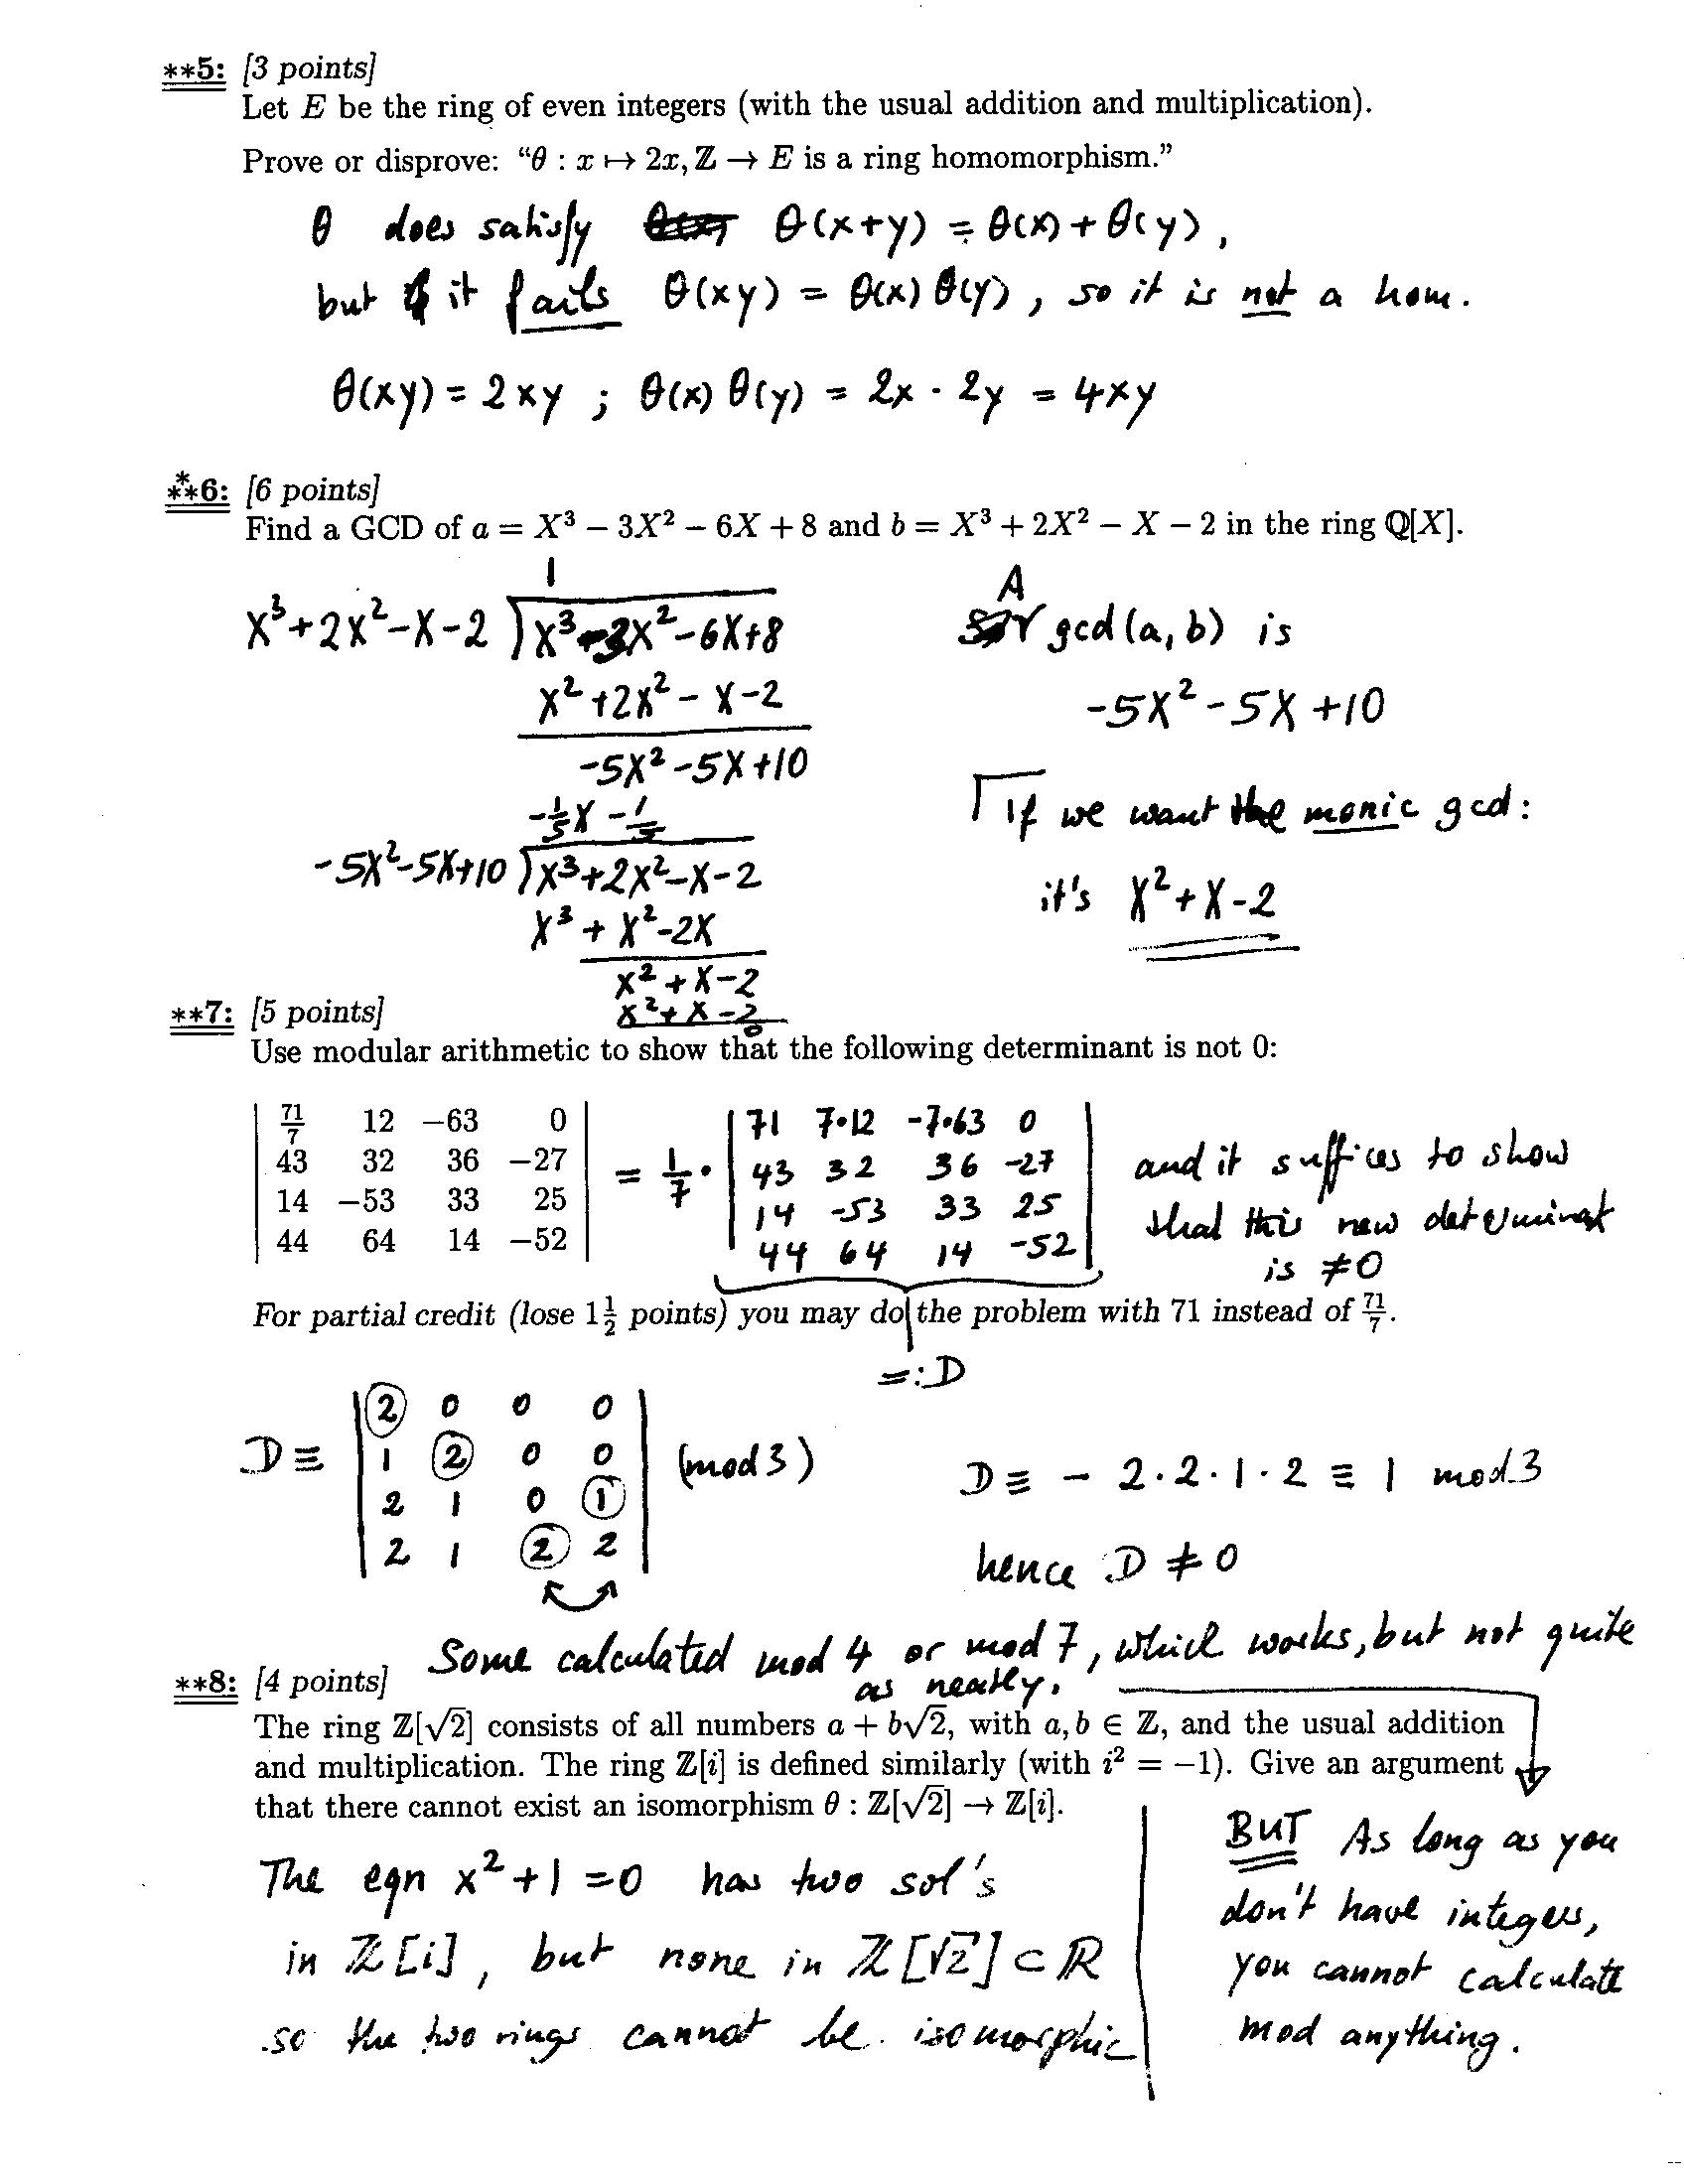 **5: [3 points]
Let E be the ring of even integers (with the usual addition and multiplication).
Prove or disprove: “θ : x ↦ 2x, ℤ → E is a ring homomorphism.”
θ does satisfy θ(x+y) = θ(x) + θ(y),
but it fails θ(xy) = θ(x) θ(y), so it is not a hom.
θ(xy) = 2xy ; θ(x) θ(y) = 2x · 2y = 4xy
***6: [6 points]
Find a GCD of a = X³ − 3X² − 6X + 8 and b = X³ + 2X² − X − 2 in the ring ℚ[X].
1
X³+2X²-X-2 ) X³-3X²-6X+8
X²+2X²-X-2
-5X²-5X+10
-1/5X -1/5
-5X²-5X+10 ) X³+2X²-X-2
X³+X²-2X
X²+X-2
X²+X-2
0
A gcd(a,b) is
-5X²-5X+10
If we want the monic gcd:
it's X²+X-2
**7: [5 points]
Use modular arithmetic to show that the following determinant is not 0:
| 71/7 12 −63 0 | = 1/7 · | 71 7·12 -7·63 0 |
| 43 32 36 −27 | | 43 32 36 -27 | and it suffices to show
| 14 −53 33 25 | | 14 -53 33 25 | that this new determinat
| 44 64 14 −52 | | 44 64 14 -52 | is ≠0
For partial credit (lose 1½ points) you may do the problem with 71 instead of 71/7.
=:D
D ≡ | 2 0 0 0 |
| 1 2 0 0 | (mod 3)
| 2 1 0 1 |
| 2 1 2 2 |
D ≡ - 2·2·1·2 ≡ 1 mod 3
hence D ≠ 0
Some calculated mod 4 or mod 7, which works, but not quite
as neatly.
**8: [4 points]
The ring ℤ[√2] consists of all numbers a + b√2, with a, b ∈ ℤ, and the usual addition
and multiplication. The ring ℤ[i] is defined similarly (with i² = −1). Give an argument
that there cannot exist an isomorphism θ : ℤ[√2] → ℤ[i].
The eqn x²+1=0 has two sol's
in ℤ[i], but none in ℤ[√2] ⊂ ℝ
so the two rings cannot be isomorphic
BUT As long as you
don't have integers,
you cannot calculate
mod anything.